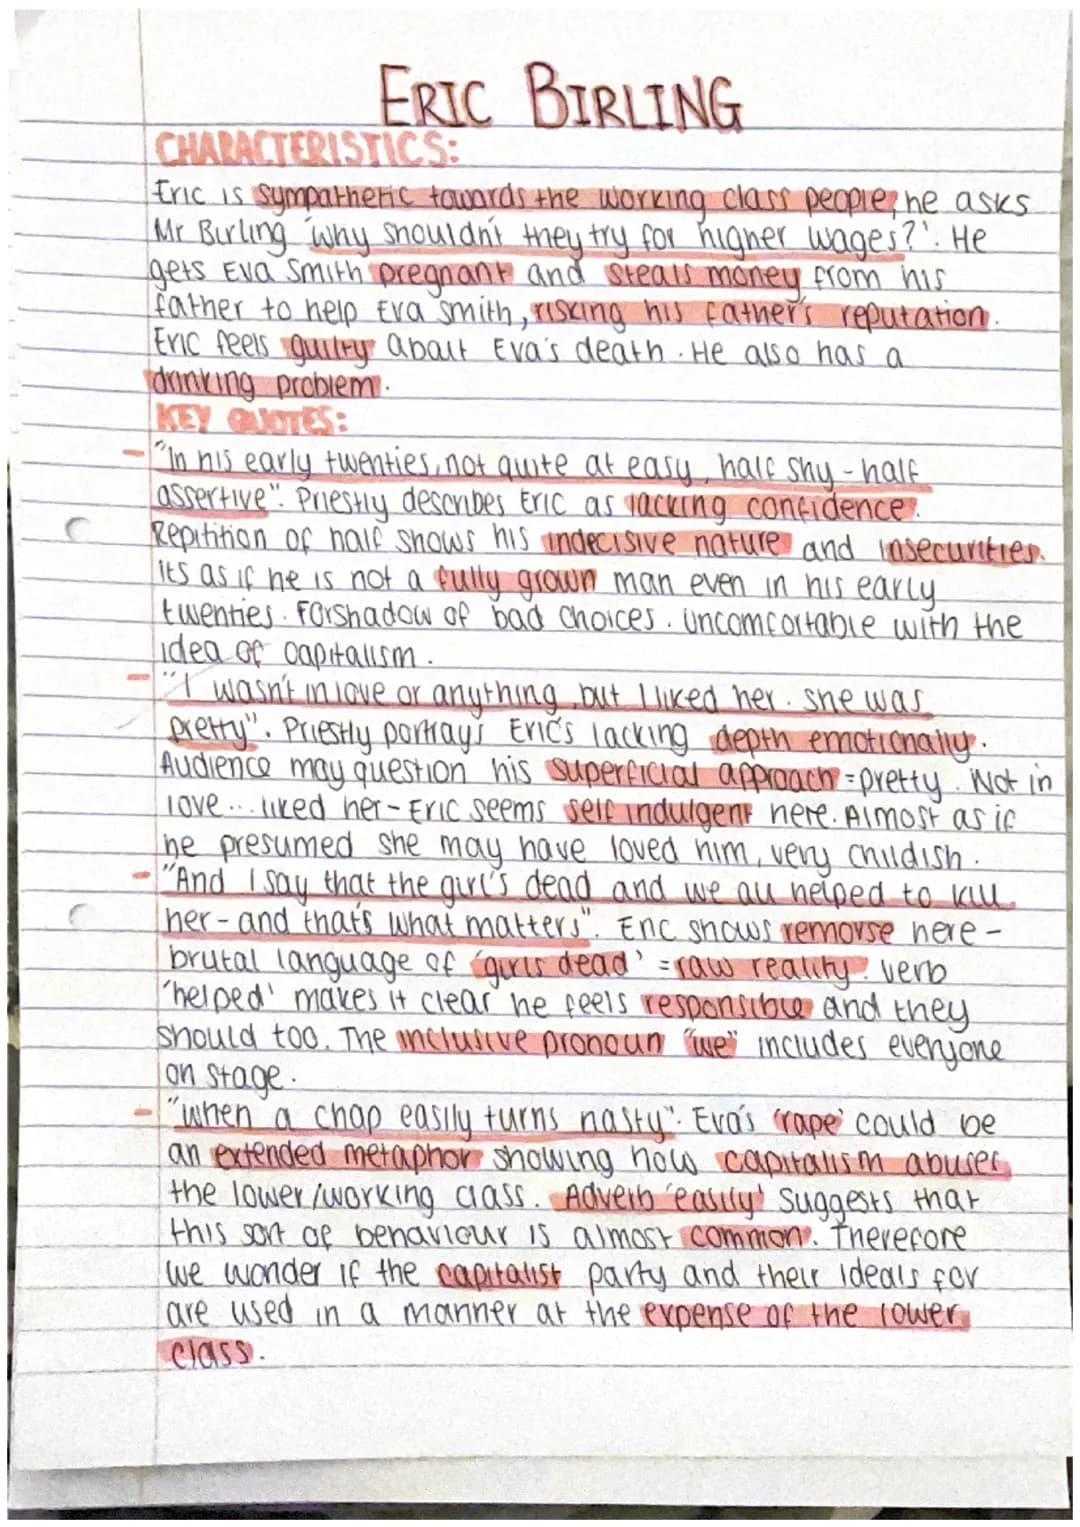 ERIC BIRLING
CHARACTERISTICS:
Eric is sympathetic towards the working class people, he asks
Mr Birling 'why shouldn't they try for higher wages?'. He
gets Eva Smith pregnant and steals money from his
father to help Eva Smith, risking his father's reputation.
Eric feels guilty about Eva's death. He also has a
drinking problem.
KEY QUOTES:
- "In his early twenties, not quite at easy, half shy - half
assertive". Priestly describes Eric as lacking confidence.
Repitition of half shows his indecisive nature and insecurities.
Its as if he is not a fully grown man even in his early
twenties. Forshadow of bad choices. Uncomfortable with the
idea of capitalism.
- "I wasn't in love or anything, but I liked her. She was
pretty". Priestly portrays Eric's lacking depth emotionally.
Audience may question his superficial approach = pretty. Not in
love... liked her - Eric seems self indulgent here. Almost as if
he presumed she may have loved him, very childish.
- "And I say that the girl's dead and we all helped to kill
her - and that's what matters". Eric shows remorse here -
brutal language of 'girls dead' = raw reality. Verb
'helped' makes it clear he feels responsible and they
should too. The inclusive pronoun "we" includes everyone
on stage.
- "when a chap easily turns nasty". Eva's 'rape' could be
an extended metaphor showing how capitalism abuses
the lower/working class. Adverb 'easily' suggests that
this sort of behaviour is almost common. Therefore
we wonder if the capitalist party and their ideals for
are used in a manner at the expense of the lower
class.